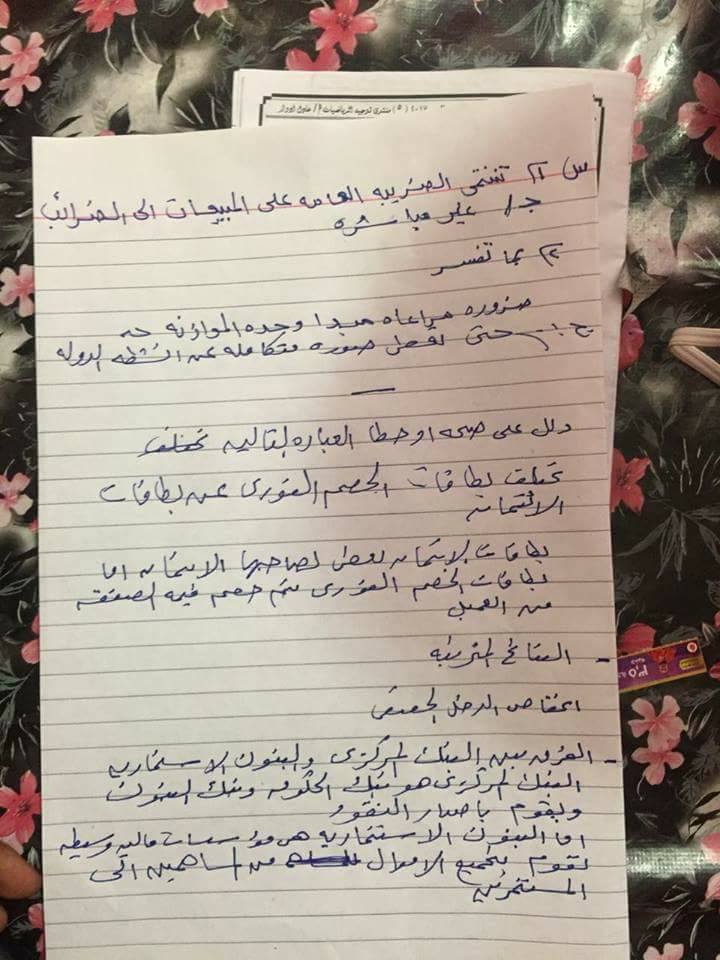 ٢٠١٧ (٥) منتدى توجيه الرياضيات /أ عادل إدوار
س ٢١ تنتمى الضريبه العامه على المبيعات الى الضرائب
جـ/ غير مباشره
٢٢ بما تفسر
ضروره مراعاه مبدا وحده الموازنه
جـ ١- حتى تعطى صوره متكامله عن انشطه الدوله
دلل على صحه او خطا العباره لتاليه تختلف
تختلف بطاقات الخصم الفورى عن بطاقات
الائتمان
بطاقات الايتمان تعطى لصاحبها الايتمان اما
بطاقات الخصم الفورى يتم خصم قيمه الصفقه
من العميل
- النتائج المترتبه
انخفاض الدخل الحقيقى
- الفرق بين البنك المركزى والبنوك الاستثماريه
البنك المركزى هو بنك الحكومه وبنك البنوك
ويقوم باصدار النقود
اما البنوك الاستثماريه هى مؤسسات ماليه وسيطه
تقوم بتجميع الاموال من اساهمين الى
المستثمرين
٣,٥